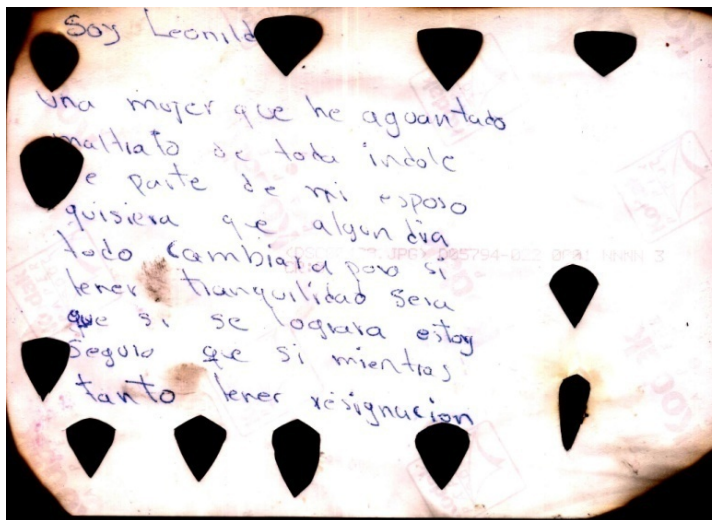 Soy Leonild
una mujer que he aguantado
maltrato de toda indole
e parte de mi esposo
quisiera que algun dia
todo cambiara para si
tener tranquilidad sera
que si se lograra estoy
Seguro que si mientras
tanto tener resignacion